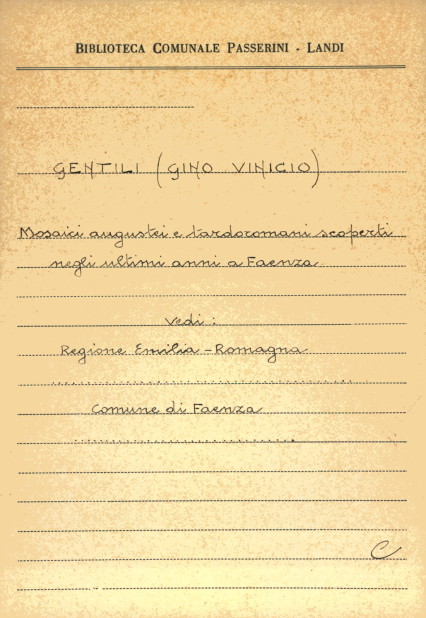 BIBLIOTECA COMUNALE PASSERINI - LANDI
GENTILI (GINO VINICIO)
Mosaici augustei e tardoromani scoperti
negli ultimi anni a Faenza
vedi:
Regione Emilia-Romagna
Comune di Faenza
C